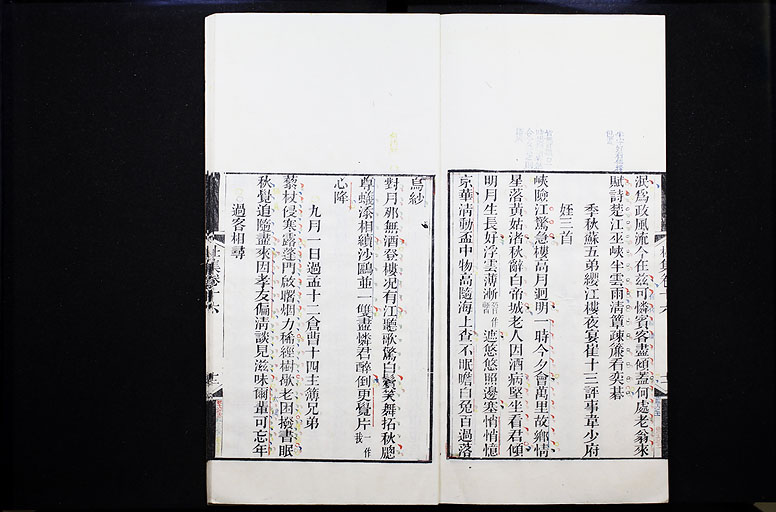 泯為政風流今在茲可憐賓客盡傾蓋何處老翁來
賦詩楚江巫峽半雲雨清簟疎簾看奕棊
季秋蘇五弟纓江樓夜宴崔十三評事韋少府
姪三首
峽險江驚急樓高月迥明一時今夕會萬里故鄉情
星落黃姑渚秋辭白帝城老人因酒病堅坐看君傾
明月生長好浮雲薄漸遮悠悠照邊塞悄悄憶
京華清動盃中物高隨海上查不眠瞻白兔百過落
烏紗
對月那無酒登樓況有江聽歌驚白鬢笑舞拓秋牕
尊蟻添相續沙鷗並一雙盡憐君醉倒更覺片一作我
心降
九月一日過孟十二倉曹十四主簿兄弟
藜杖侵寒露蓬門啟曙烟力稀經樹歇老困撥書眠
秋覺追隨盡來因孝友偏清談見滋味爾輩可忘年
過客相尋